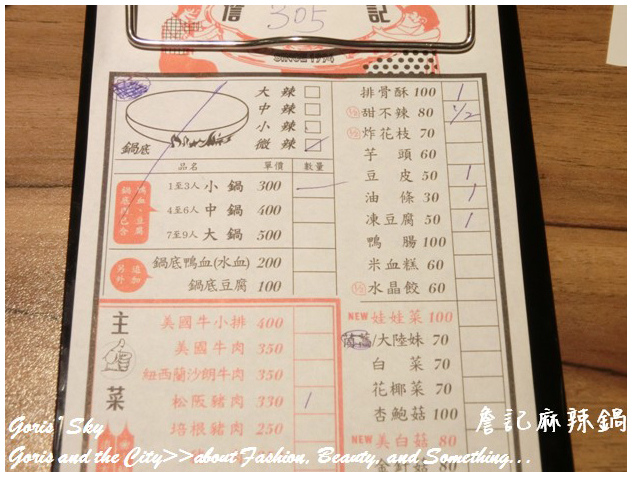 信 305 記
SINCE 1994
大辣
中辣
小辣
微辣
鍋底
品名 單價 數量
1至3人 小鍋 300
4至6人 中鍋 400
7至9人 大鍋 500
鴨血、豆腐
鍋底內已含
鍋底鴨血(水血) 200
鍋底豆腐 100
另外
追加
主菜
美國牛小排 400
美國牛肉 350
紐西蘭沙朗牛肉 350
松阪豬肉 330 1
培根豬肉 250
排骨酥 100 1
甜不辣 80 1/2
炸花枝 70
芋頭 60
豆皮 50 1
油條 30 1
凍豆腐 50 1
鴨腸 100
米血糕 60
水晶餃 60
NEW 娃娃菜 100
/大陸妹 70
白菜 70
花椰菜 70
杏鮑菇 100
NEW 美白菇 80
金針菇 80
詹記麻辣鍋
Goris' Sky
Goris and the City>>about Fashion, Beauty, and Something...